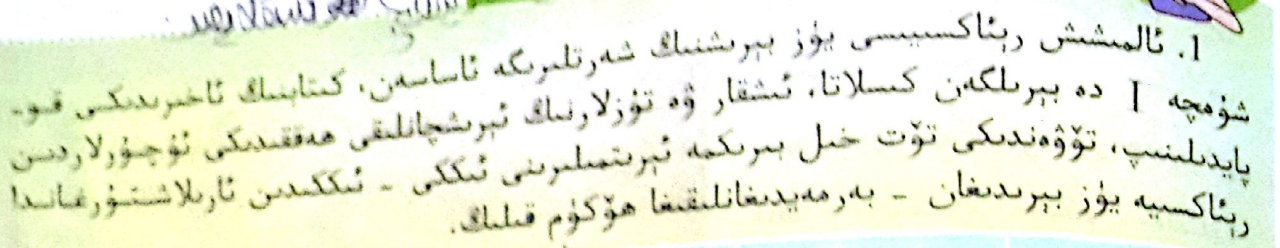 1. ئالمىشىش رېئاكسىيىسى يۈز بېرىشنىڭ شەرتلىرىگە ئاساسەن، كىتابنىڭ ئاخىرىدىكى قو-
شۇمچە I دە بېرىلگەن كىسلاتا، ئىشقار ۋە تۇزلارنىڭ ئېرىشچانلىقى ھەققىدىكى ئۇچۇرلاردىن
پايدىلىنىپ، تۆۋەندىكى تۆت خىل بىرىكمە ئېرىتمىلىرىنى ئىككى - ئىككىدىن ئارىلاشتۇرغاندا
رېئاكسىيە يۈز بېرىدىغان - بەرمەيدىغانلىقىغا ھۆكۈم قىلىڭ.